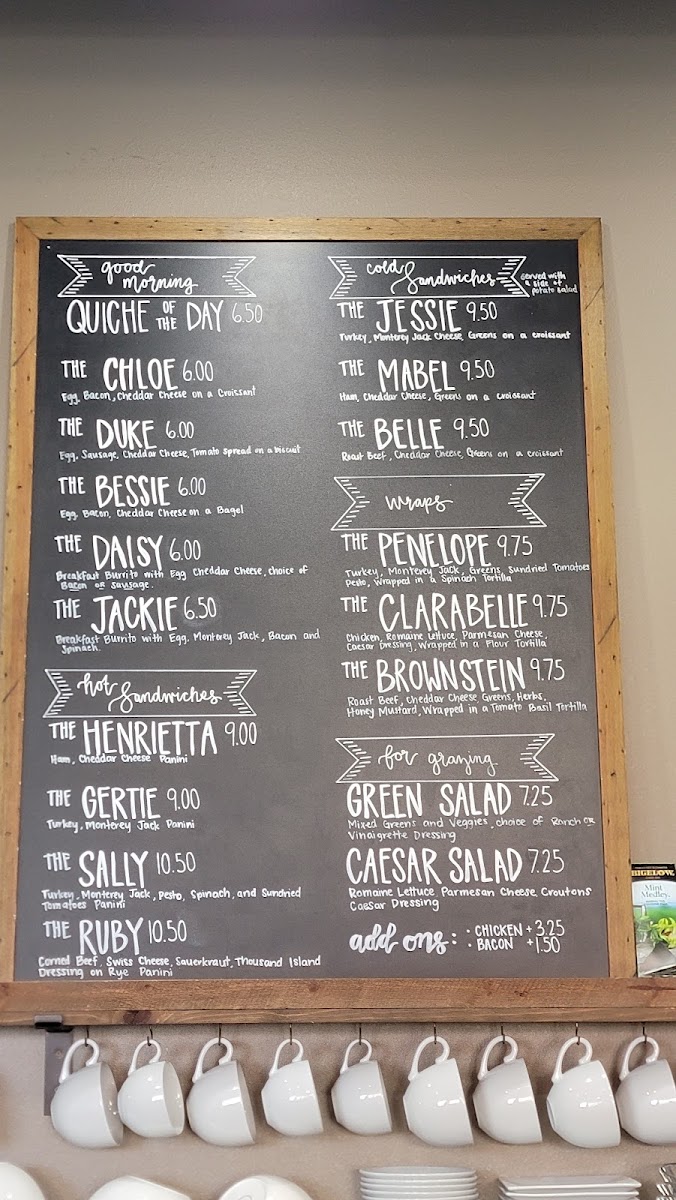 good
morning
QUICHE OF THE DAY 6.50
THE CHLOE 6.00
Egg, Bacon, Cheddar Cheese on a Croissant
THE DUKE 6.00
Egg, Sausage, Cheddar Cheese, Tomato spread on a biscuit
THE BESSIE 6.00
Egg, Bacon, Cheddar Cheese on a Bagel
THE DAISY 6.00
Breakfast Burrito with Egg Cheddar Cheese, choice of
Bacon or sausage.
THE JACKIE 6.50
Breakfast Burrito with Egg, Monterey Jack, Bacon and
Spinach.
hot Sandwiches
THE HENRIETTA 9.00
Ham, Cheddar Cheese Panini
THE GERTIE 9.00
Turkey, Monterey Jack Panini
THE SALLY 10.50
Turkey, Monterey Jack, Pesto, Spinach, and Sundried
Tomatoes Panini
THE RUBY 10.50
Corned Beef, Swiss Cheese, Sauerkraut, Thousand Island
Dressing on Rye Panini
cold Sandwiches
served with
a side of
potato salad
THE JESSIE 9.50
Turkey, Monterey Jack Cheese, Greens on a croissant
THE MABEL 9.50
Ham, Cheddar Cheese, Greens on a croissant
THE BELLE 9.50
Roast Beef, Cheddar Cheese, Greens on a croissant
wraps
THE PENELOPE 9.75
Turkey, Monterey Jack, Greens, Sundried Tomatoes
Pesto, Wrapped in a Spinach Tortilla
THE CLARABELLE 9.75
Chicken, Romaine Lettuce, Parmesan Cheese,
Caesar Dressing, Wrapped in a Flour Tortilla
THE BROWNSTEIN 9.75
Roast Beef, Cheddar Cheese, Greens, Herbs,
Honey Mustard, Wrapped in a Tomato Basil Tortilla
for grazing
GREEN SALAD 7.25
Mixed Greens and Veggies, choice of Ranch or
Vinaigrette Dressing
CAESAR SALAD 7.25
Romaine Lettuce, Parmesan Cheese, Croutons
Caesar Dressing
add ons: : CHICKEN +3.25
: BACON +1.50
BIGELOW
Mint
Medley